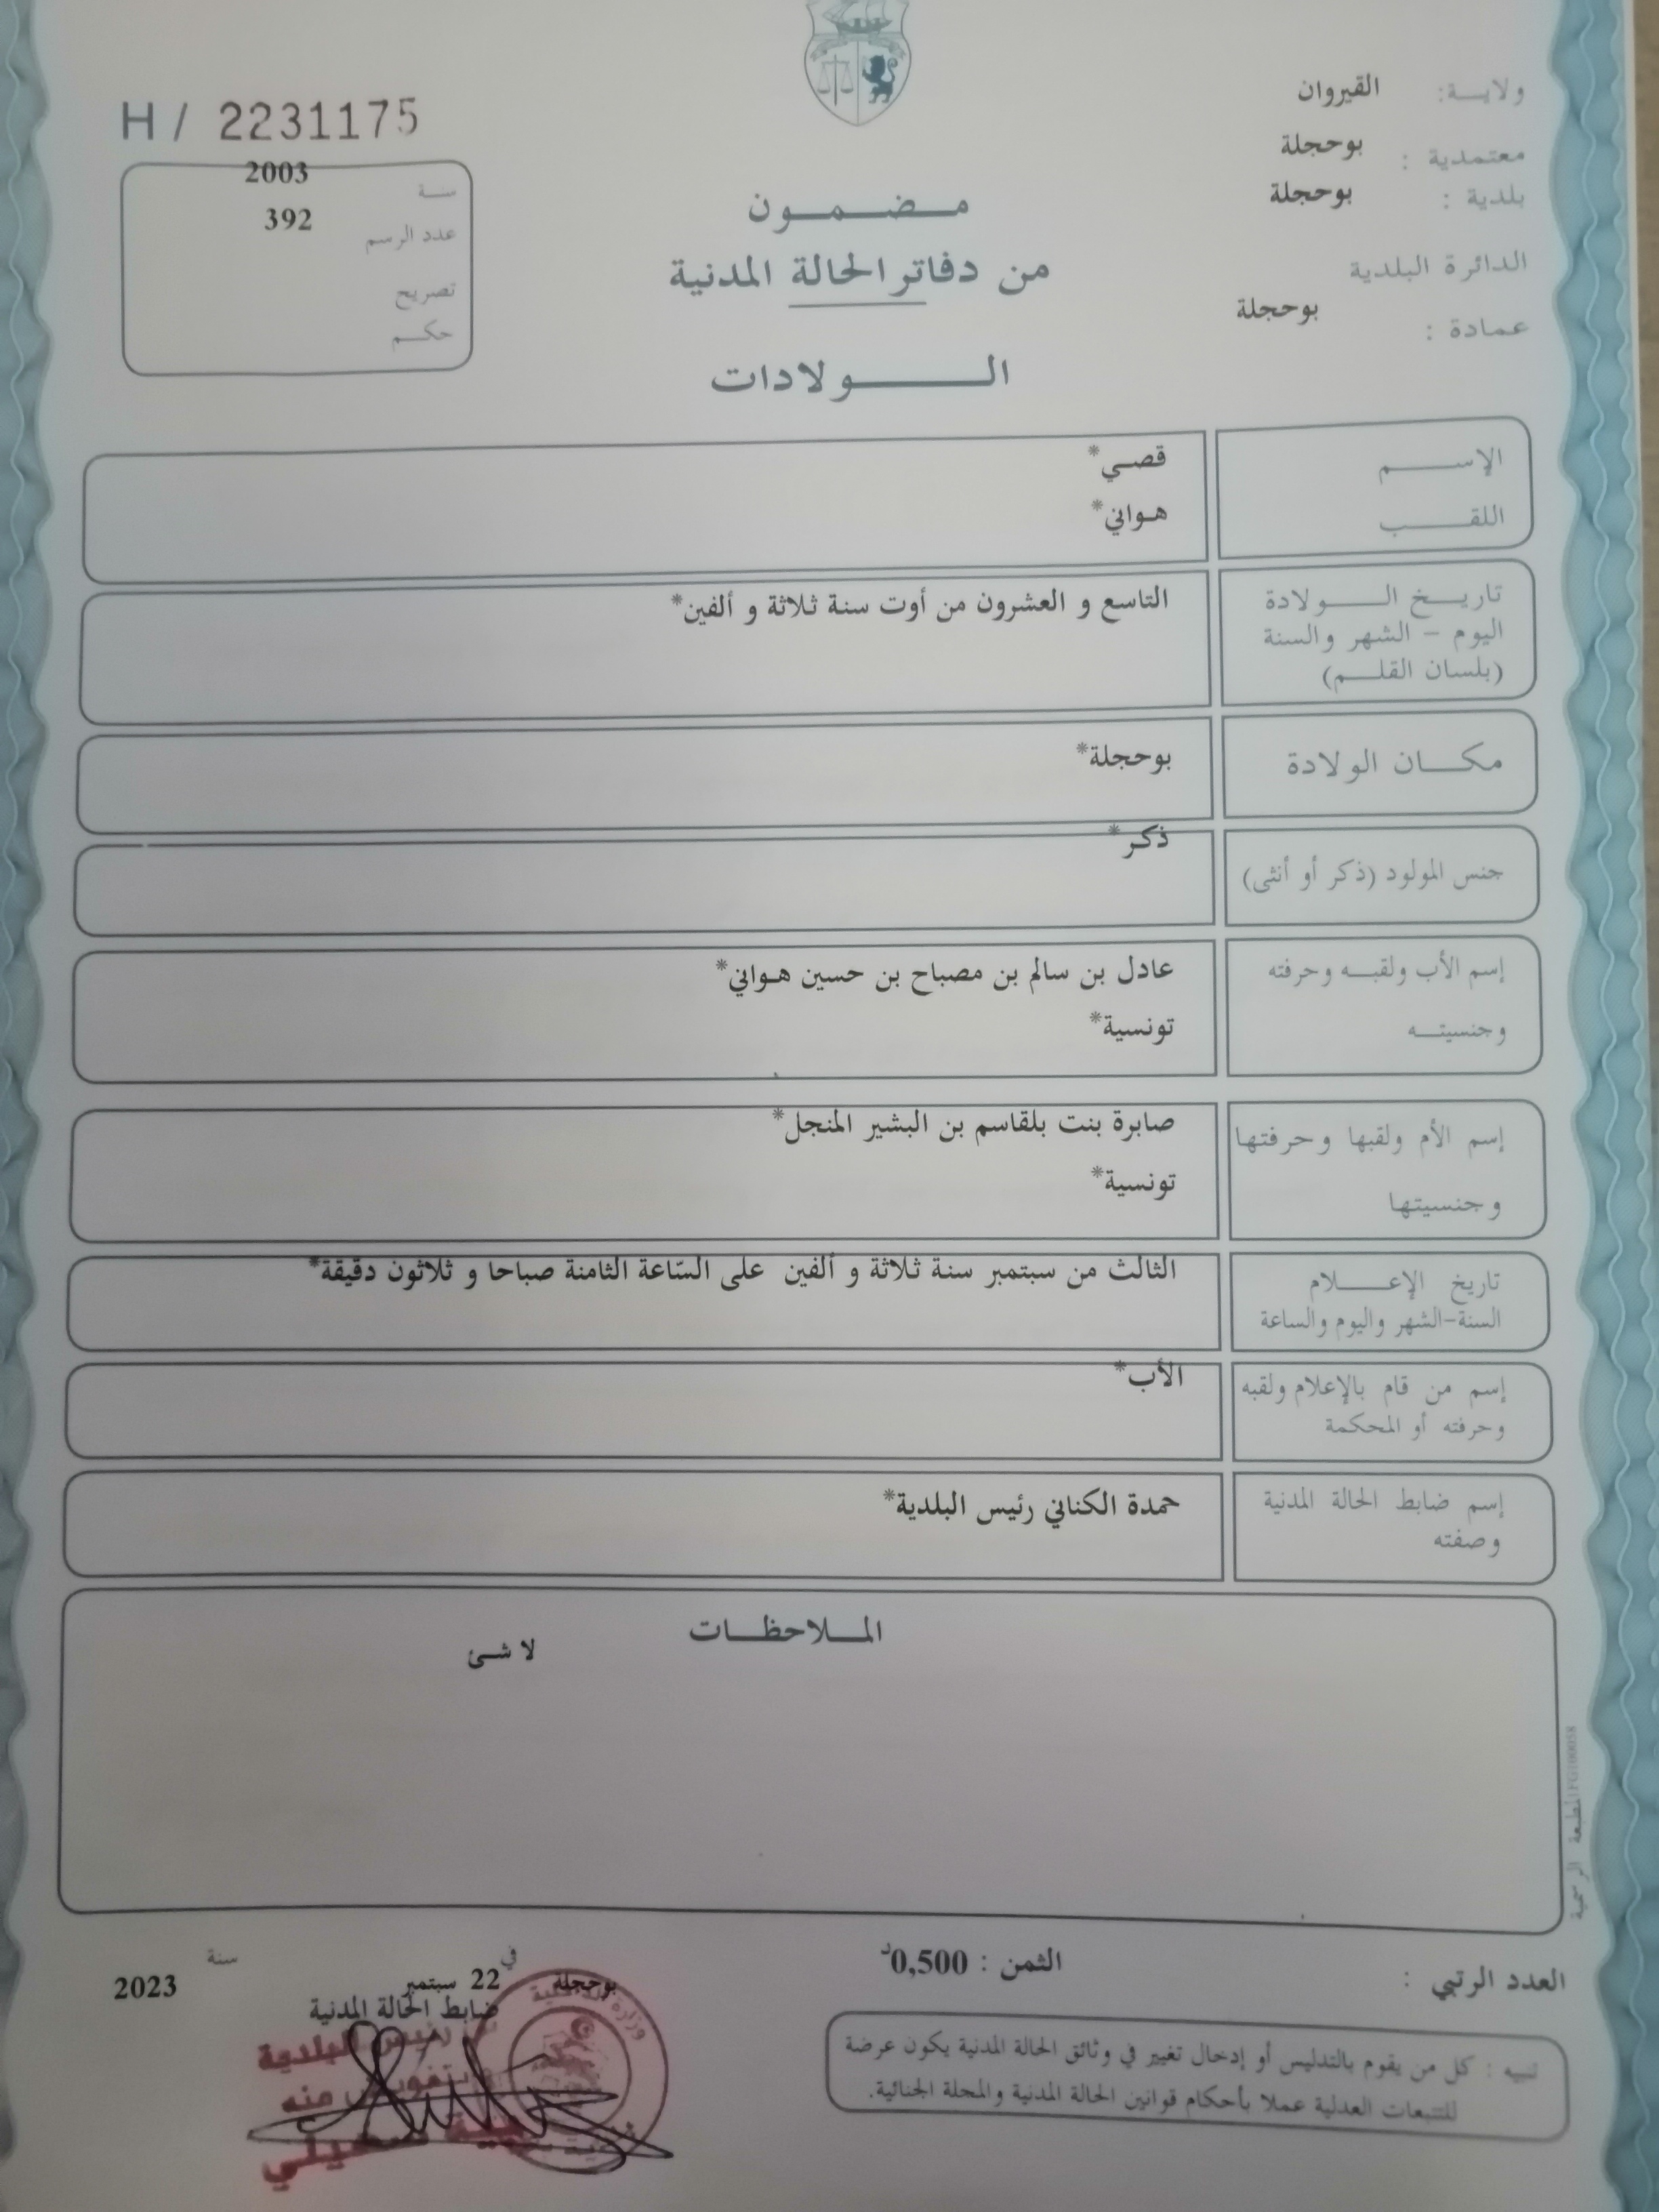 ولاية: القيروان
معتمدية : بوحجلة
بلدية : بوحجلة
الدائرة البلدية
عمادة : بوحجلة
H / 2231175
سنة 2003
عدد الرسم 392
تصريح
حكم
مضمون
من دفاتر الحالة المدنية
الولادات
الإسم قصي*
اللقب هواني*
تاريخ الولادة التاسع و العشرون من أوت سنة ثلاثة و ألفين*
اليوم - الشهر والسنة
(بلسان القلم)
مكان الولادة بوحجلة*
جنس المولود (ذكر أو أنثى) ذكر*
إسم الأب ولقبه وحرفته عادل بن سالم بن مصباح بن حسين هواني*
وجنسيته تونسية*
إسم الأم ولقبها وحرفتها صابرة بنت بلقاسم بن البشير المنجل*
وجنسيتها تونسية*
تاريخ الإعلام الثالث من سبتمبر سنة ثلاثة و ألفين على السّاعة الثامنة صباحا و ثلاثون دقيقة*
السنة-الشهر واليوم والساعة
إسم من قام بالإعلام ولقبه الأب*
وحرفته أو المحكمة
إسم ضابط الحالة المدنية حمدة الكناني رئيس البلدية*
وصفته
الملاحظات
لا شئ
المطبعة الرسمية
العدد الرتبي :
الثمن : 0,500د
بوحجلة في 22 سبتمبر سنة 2023
ضابط الحالة المدنية
رئيس البلدية
منه
تنبيه : كل من يقوم بالتدليس أو إدخال تغيير في وثائق الحالة المدنية يكون عرضة
للتتبعات العدلية عملا بأحكام قوانين الحالة المدنية والمجلة الجنائية.